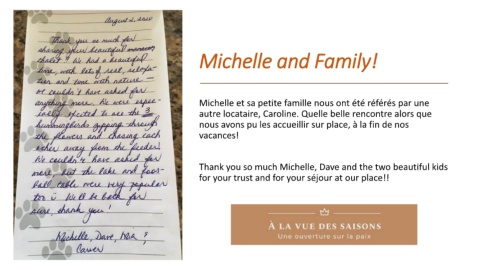 August 2, 2020
Thank you so much for
sharing your beautiful
chalet! We had a beautiful
time, with lots of rest, relaxa-
tion and time with nature –
we couldn't have asked for
anything more. We were espe-
cially excited to see the 3
hummingbirds zipping through
the flowers and chasing each
other away from the feeder!
We couldn't have asked for
more, but the lake and foos-
ball table were very popular
too :) We'll be back for
sure, thank you!
Michelle, Dave, &
Carver
Michelle and Family!
Michelle et sa petite famille nous ont été référés par une
autre locataire, Caroline. Quelle belle rencontre alors que
nous avons pu les accueillir sur place, à la fin de nos
vacances!
Thank you so much Michelle, Dave and the two beautiful kids
for your trust and for your séjour at our place!!
À LA VUE DES SAISONS
Une ouverture sur la paix